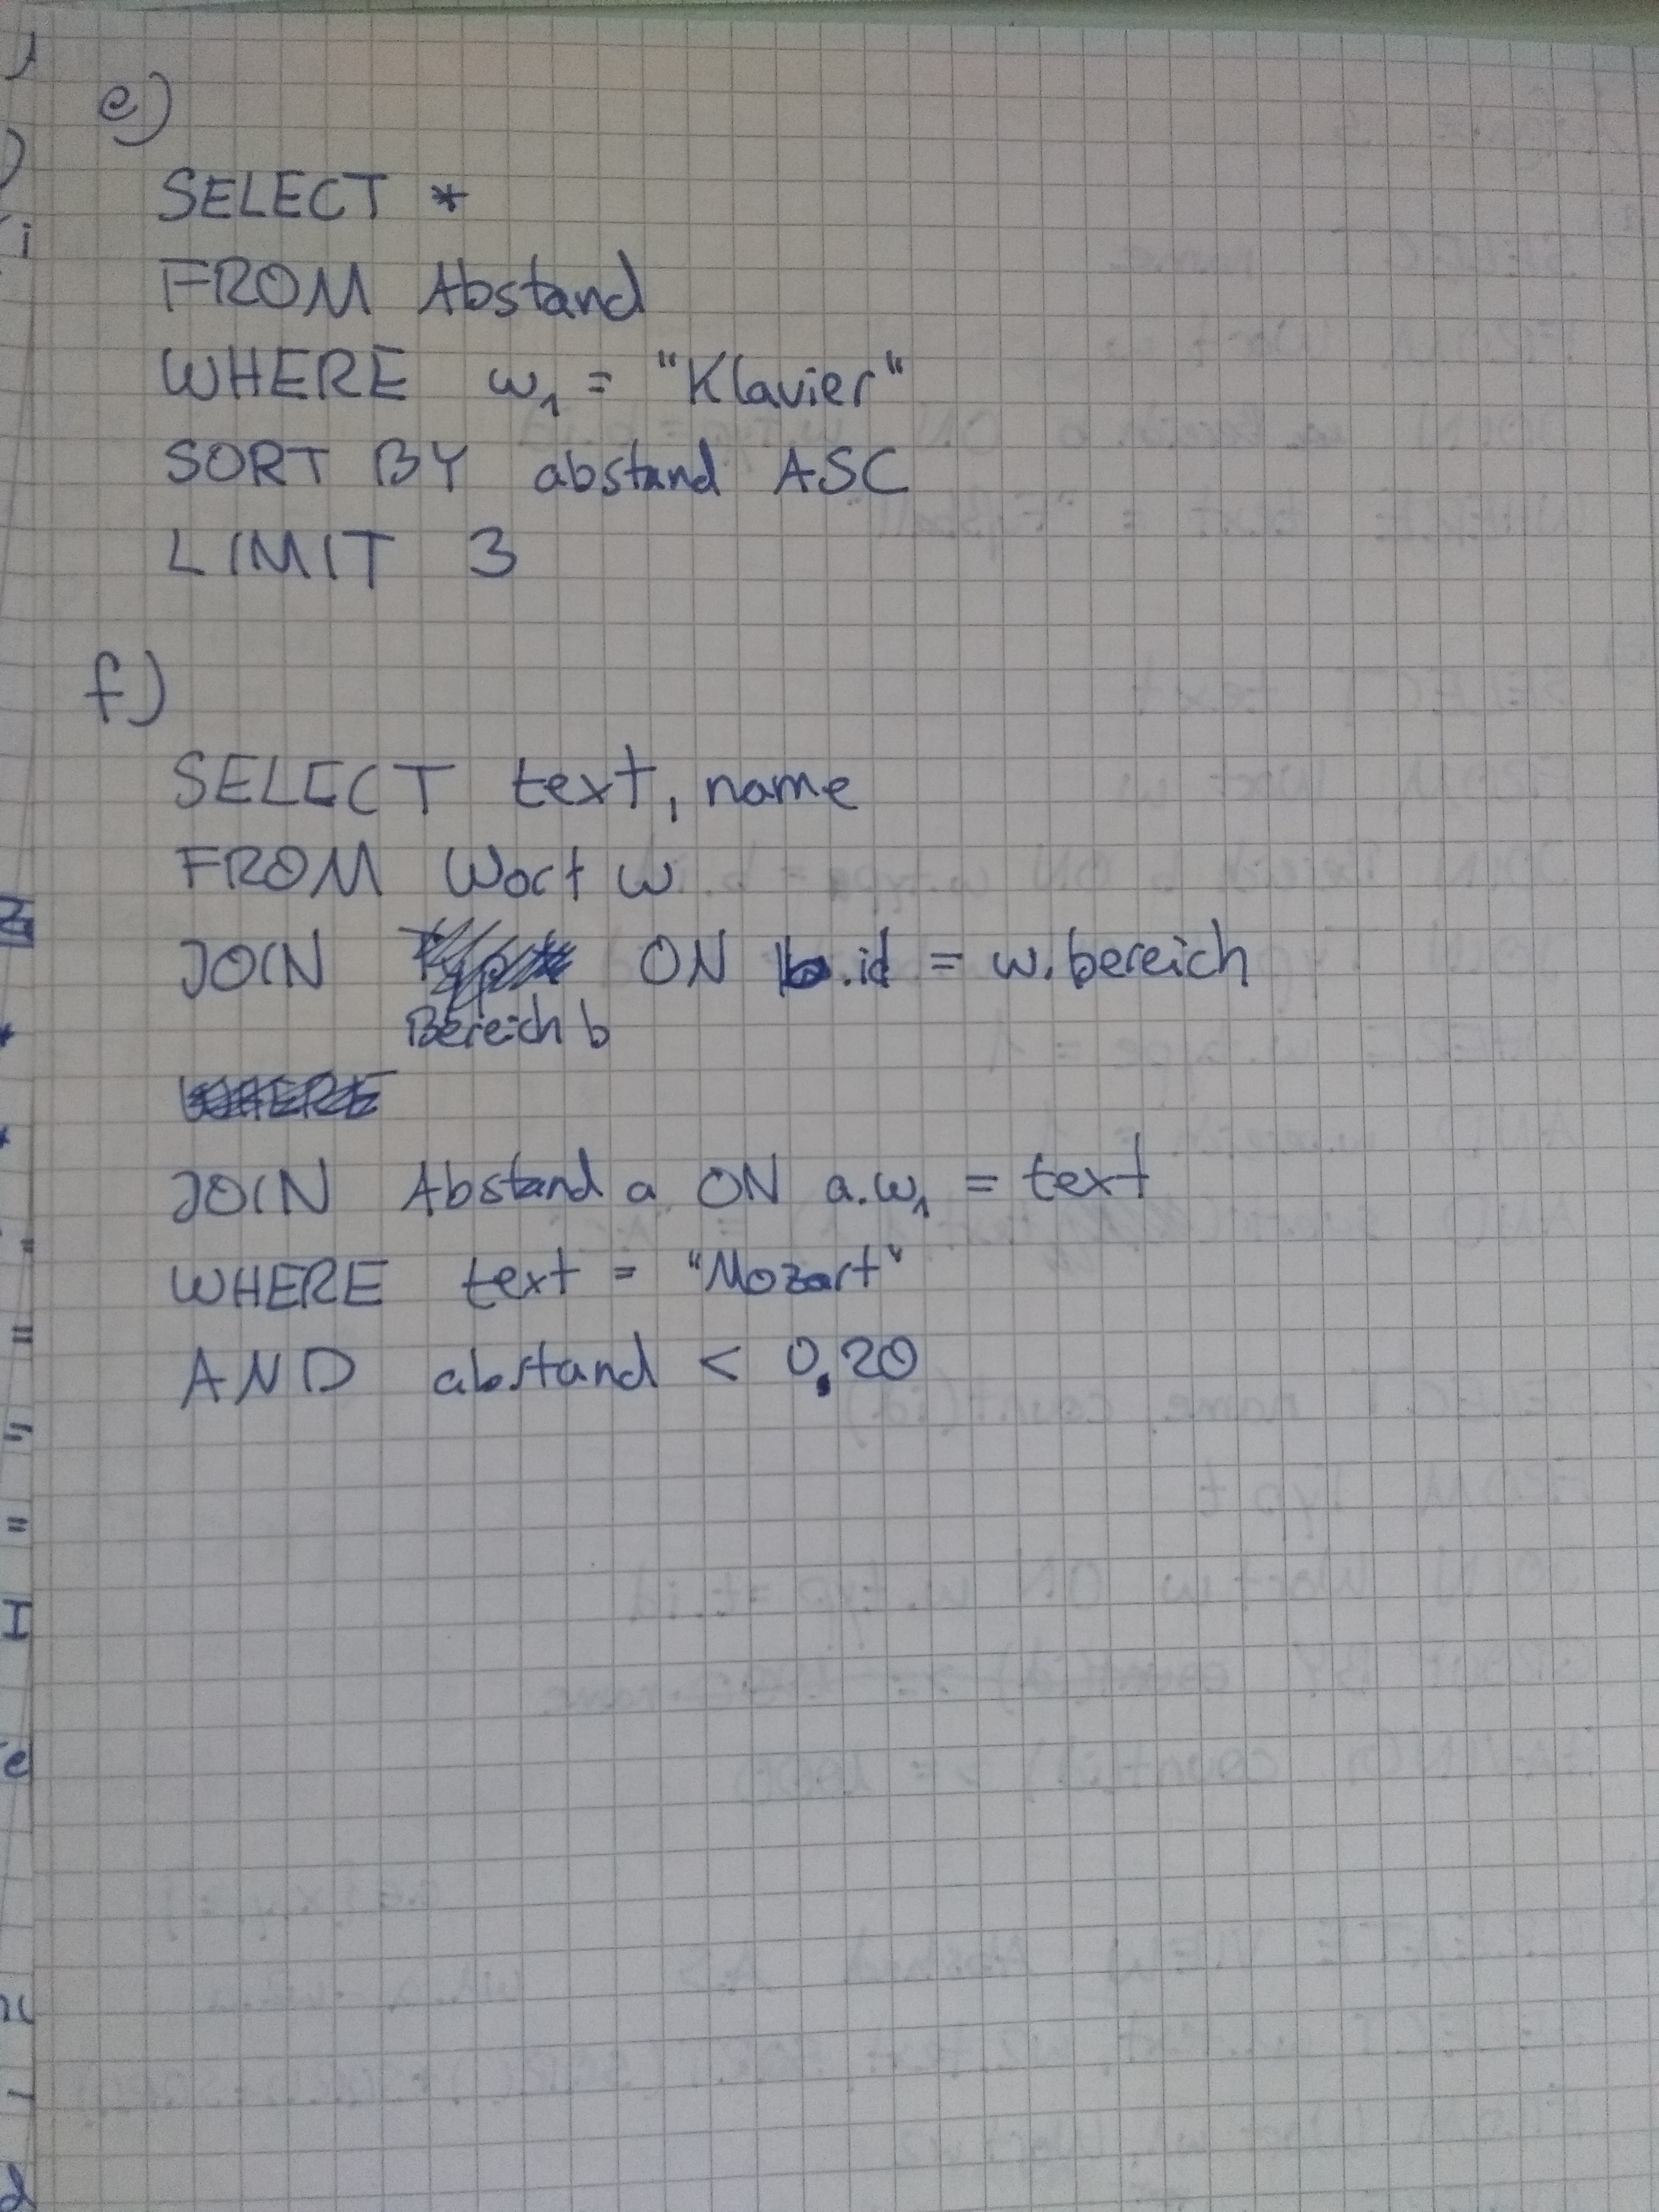 e)
SELECT *
FROM Abstand
WHERE w₁ = "Klavier"
SORT BY abstand ASC
LIMIT 3
f)
SELECT text, name
FROM Wort w
JOIN ON b.id = w.bereich
Bereich b
WHERE
JOIN Abstand a ON a.w₁ = text
WHERE text = "Mozart"
AND abstand < 0,20